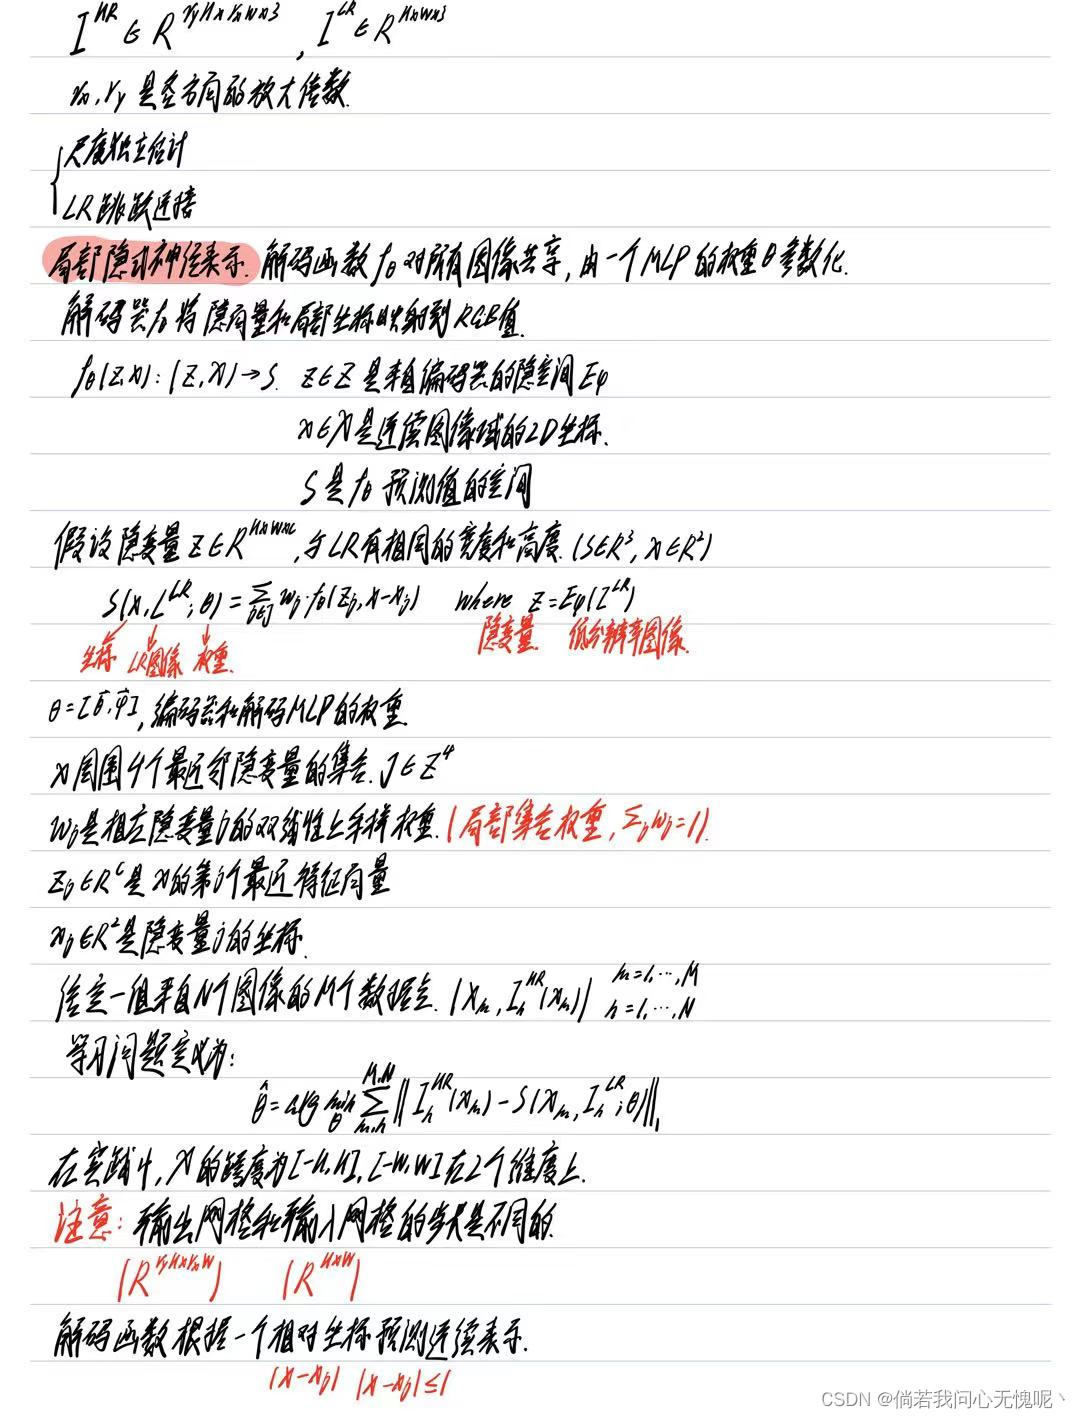 I^{HR} ∈ R^{r_yH×r_xW×3}, I^{LR} ∈ R^{H×W×3}
r_x, r_y 是各方向的放大倍数.
{ 尺度独立估计
LR 跳跃连接
局部隐式神经表示. 解码函数 f_θ 对所有图像共享, 由一个 MLP 的权重 θ 参数化.
解码器 f_θ 将隐向量和局部坐标映射到 RGB值.
f_θ(z,x): (Z,X) → S. z∈Z 是来自编码器的隐空间 E_φ
x∈X 是连续图像域的2D坐标.
S 是 f_θ 预测值的空间
假设隐变量 z∈R^{H×W×C}, 与LR有相同的宽度和高度. (S∈R^3, X∈R^2)
S(x, I^{LR}; θ) = Σ_{j∈J} w_j·f_θ(z_j, x-x_j) where z = E_φ(I^{LR})
坐标 LR图像 权重. 隐变量. 低分辨率图像.
θ = [θ, φ], 编码器和解码MLP的权重.
x 周围4个最近邻隐变量的集合. J∈Z^4
w_j 是相应隐变量 j 的双线性上采样权重. (局部集合权重, Σ_j w_j = 1).
z_j ∈ R^C 是 x 的第 j 个最近特征向量
x_j ∈ R^2 是隐变量 j 的坐标.
给定一组来自N个图像的M个数据点. (x_m, I_n^{HR}(x_m)) m=1,…,M
n=1,…,N
学习问题定义为:
θ̂ = arg min_θ Σ_{m,n}^{M,N} ‖ I_n^{HR}(x_m) - S(x_m, I_n^{LR}; θ) ‖_1
在实践中, X 的跨度为 [-H,H], [-W,W] 在2个维度上.
注意: 输出网格和输入网格的步长是不同的.
(R^{r_yH×r_xW}) (R^{H×W})
解码函数根据一个相对坐标预测连续表示.
(x-x_j) |x-x_j| ≤ 1
CSDN @倘若我问心无愧呢丶